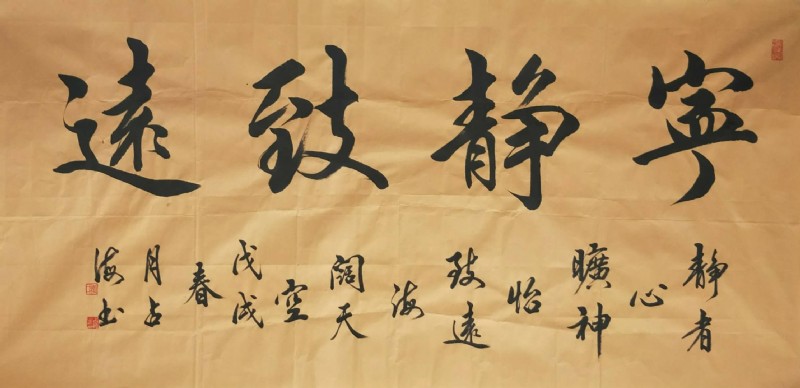 寧静致遠
静者
心
曠神
怡
致遠
海
闊天
空
戊戌
春
月占
海书